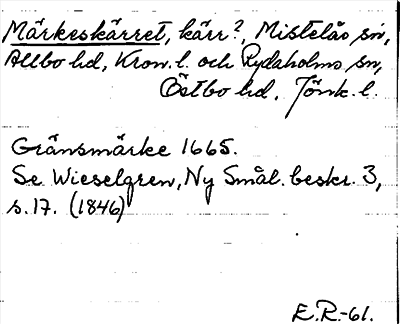 Märkeskärret, kärr?, Mistelås sn,
Allbo hd, Kron. l. och Rydaholms sn,
Östbo hd, Jönk. l.
Gränsmärke 1665.
Se Wieselgren, Ny Smål. beskr. 3,
s. 17. (1846)
E.R.-61.